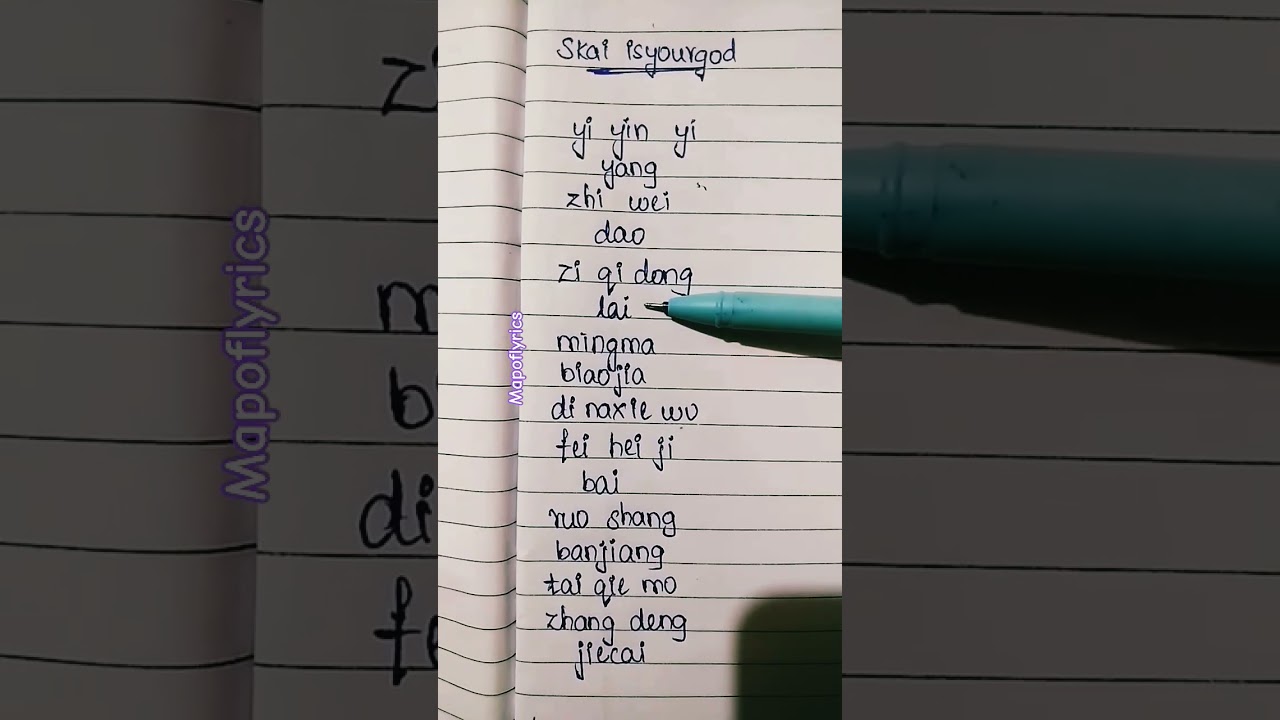 Skai isyourgod
yi yin yi
yang
zhi wei
dao
zi qi dong
lai
mingma
biaojia
di naxie wu
fei hei ji
bai
ruo shang
banjiang
tai qie mo
zhang deng
jiecai
Mapoflyrics
Mapoflyrics